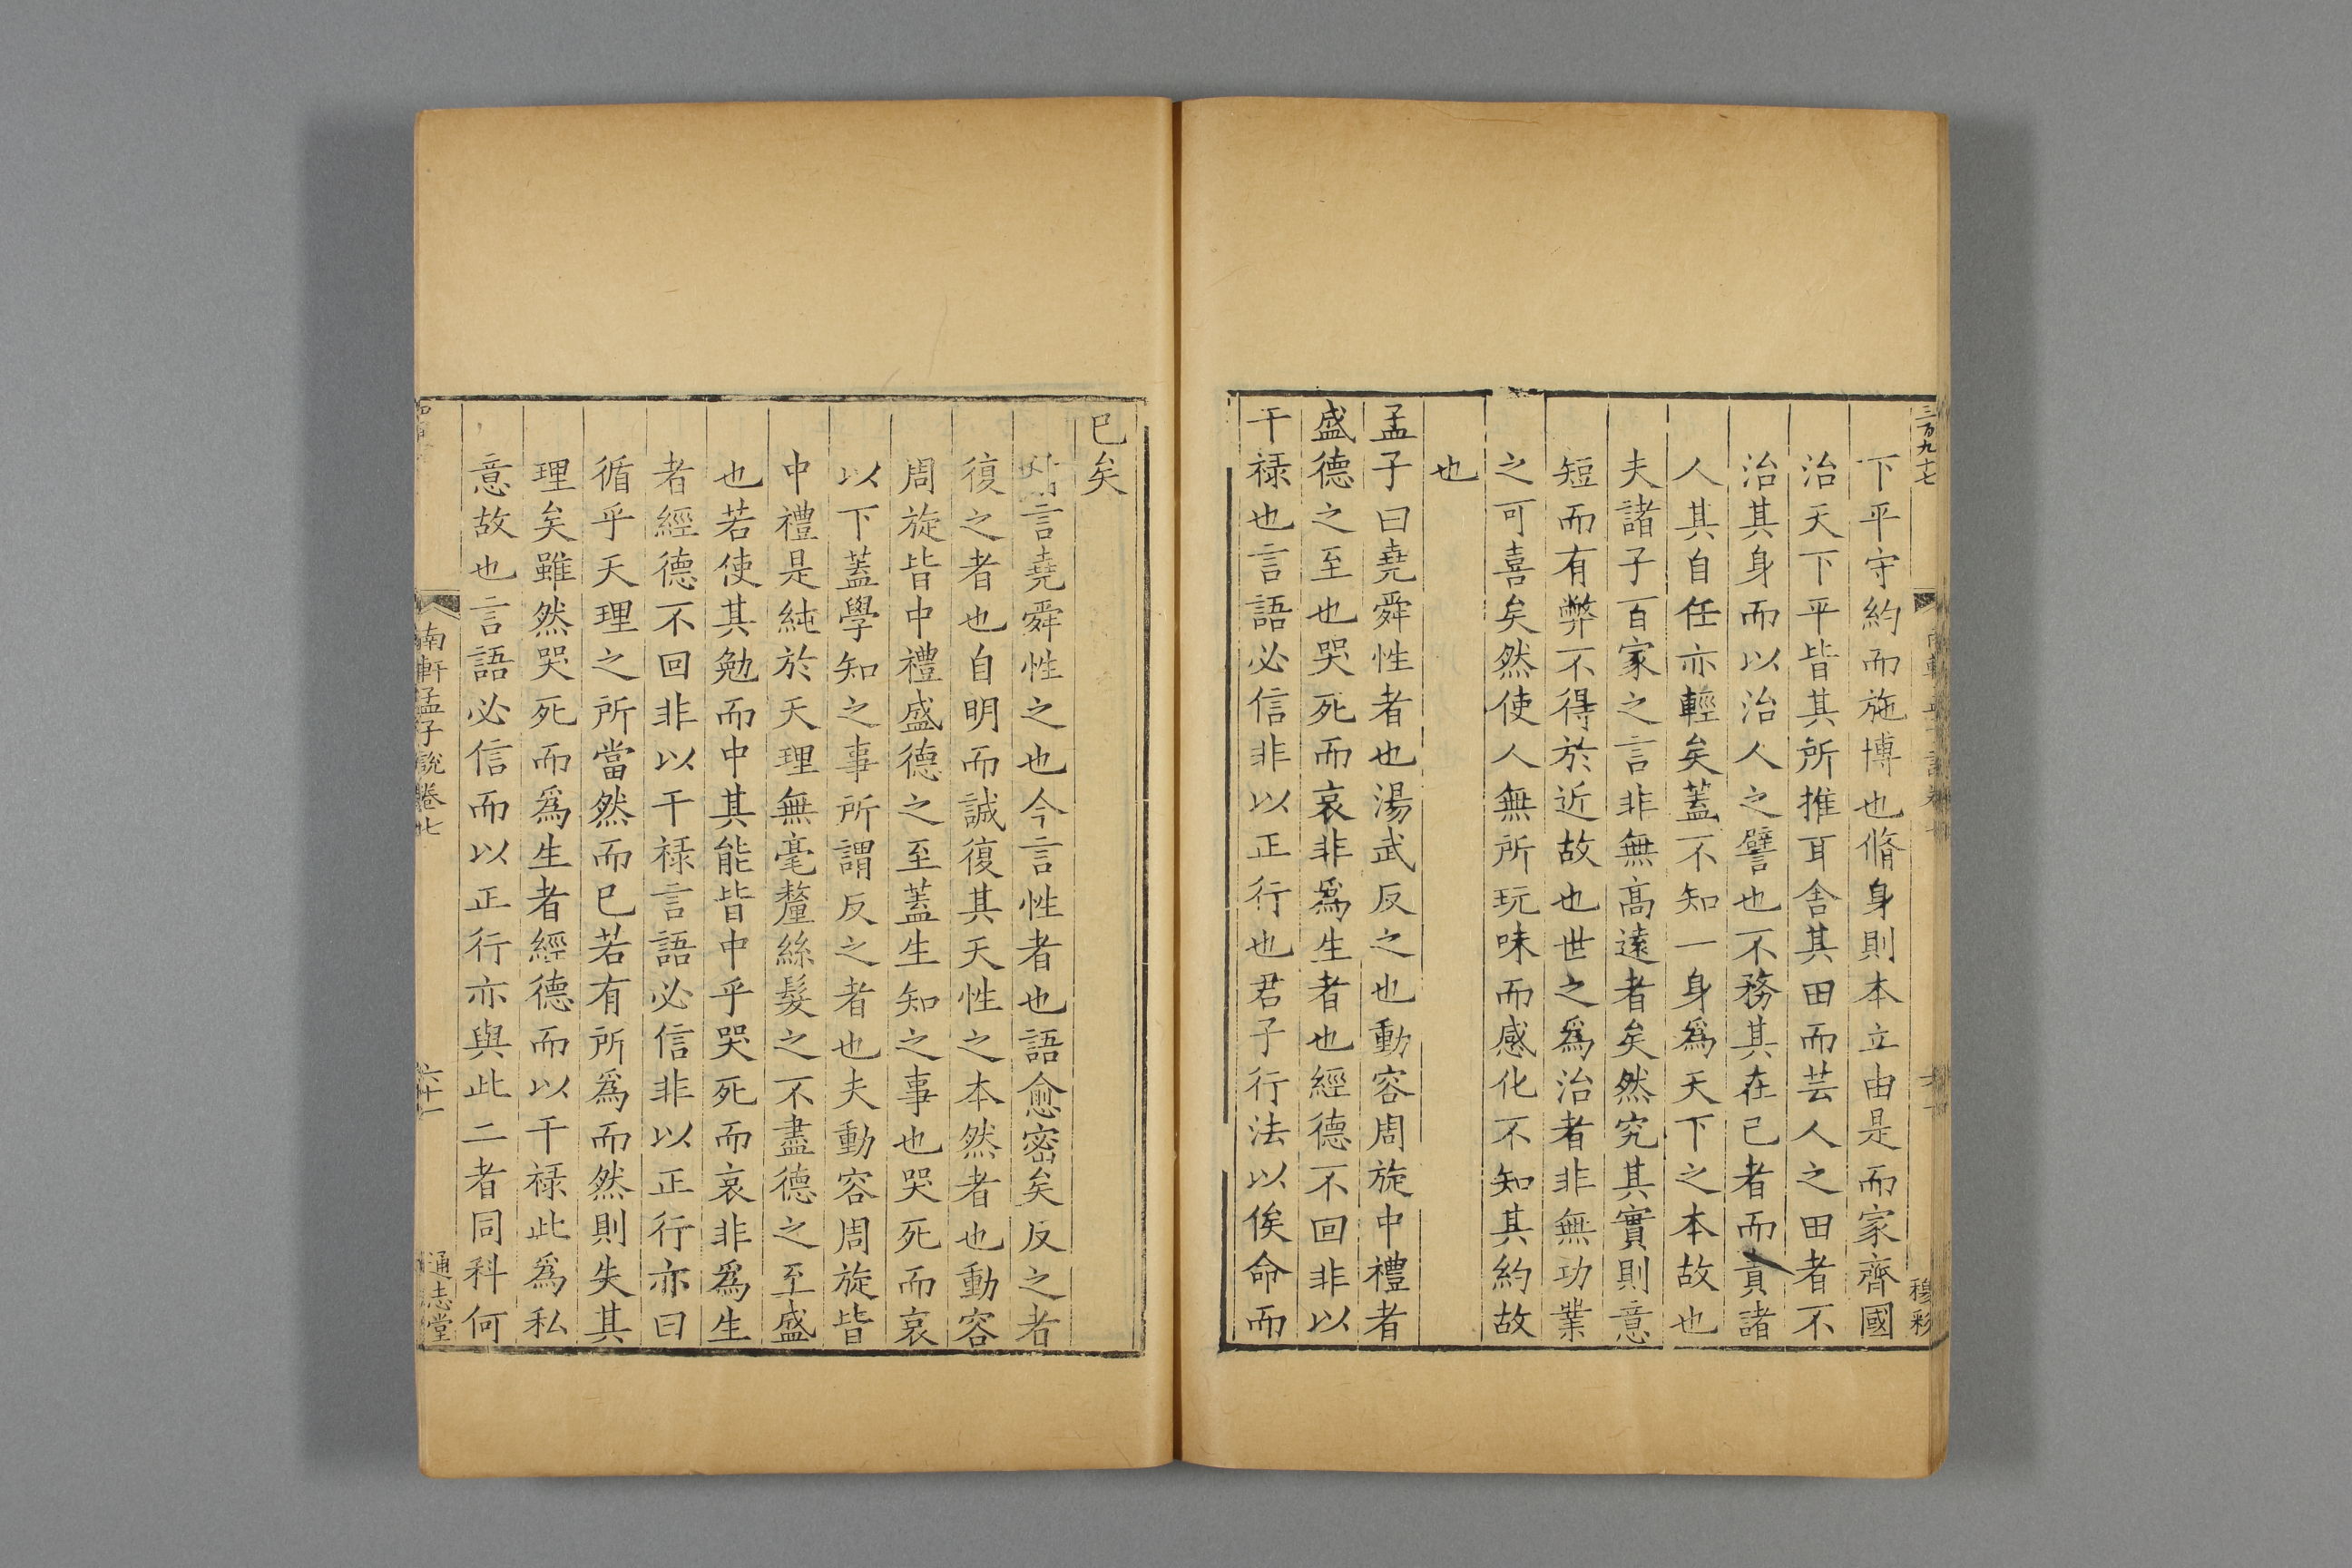 三百九十七
穆彩
下平守約而施博也脩身則本立由是而家齊國
治天下平皆其所推耳舍其田而芸人之田者不
治其身而以治人之譬也不務其在已者而責諸
人其自任亦輕矣蓋不知一身爲天下之本故也
夫諸子百家之言非無高遠者矣然究其實則意
短而有弊不得於近故也世之爲治者非無功業
之可喜矣然使人無所玩味而感化不知其約故
也
孟子曰堯舜性者也湯武反之也動容周旋中禮者
盛德之至也哭死而哀非爲生者也經德不回非以
干禄也言語必信非以正行也君子行法以俟命而
已矣
言堯舜性之也今言性者也語愈密矣反之者
復之者也自明而誠復其天性之本然者也動容
周旋皆中禮盛德之至蓋生知之事也哭死而哀
以下蓋學知之事所謂反之者也夫動容周旋皆
中禮是純於天理無毫釐絲髮之不盡德之至盛
也若使其勉而中其能皆中乎哭死而哀非爲生
者經德不回非以干禄言語必信非以正行亦曰
循乎天理之所當然而已若有所爲而然則失其
理矣雖然哭死而爲生者經德而以干禄此爲私
意故也言語必信而以正行亦與此二者同科何
南軒孟子說卷七
六十一
通志堂